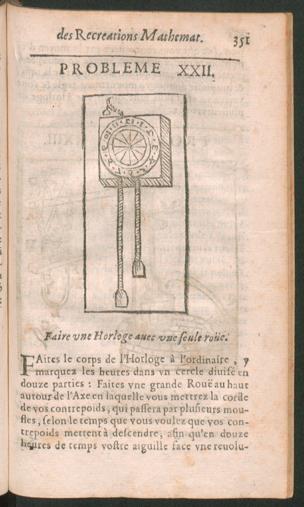 des Recreations Mathemat. 351
PROBLEME XXII.
Faire vne Horloge auec vne seule roüe.
FAites le corps de l'Horloge à l'ordinaire, y
marquez les heures dans vn cercle diuisé en
douze parties : Faites vne grande Rouë au haut
autour de l'Axe en laquelle vous mettrez la corde
de vos contrepoids, qui passera par plusieurs mou-
fles, selon le temps que vous voulez que vos con-
trepoids mettent à descendre, afin qu'en douze
heures de temps vostre aiguille face vne reuolu-